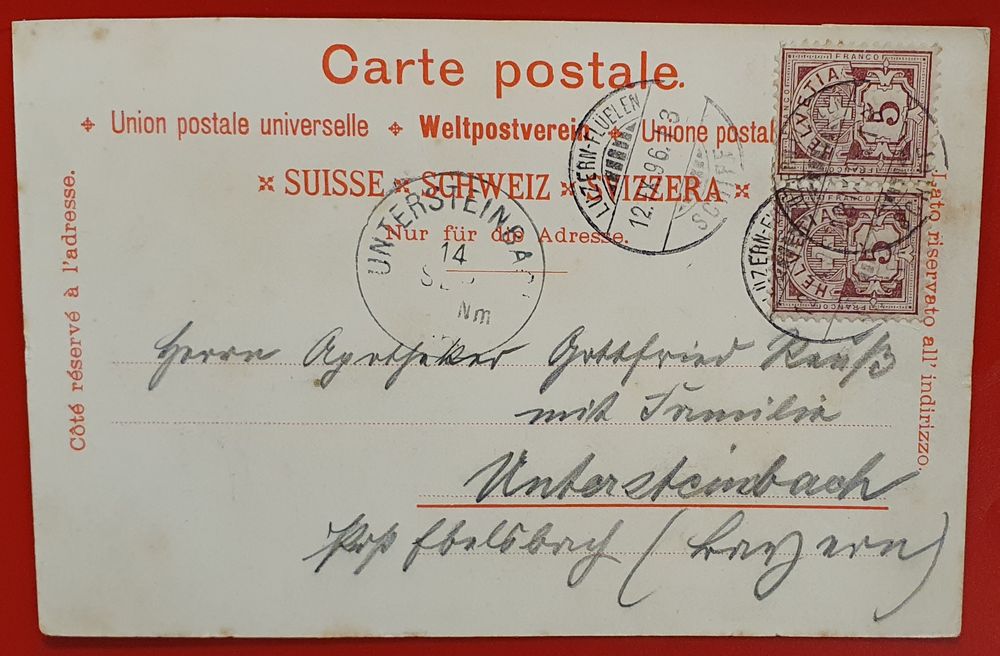 Carte postale.
Union postale universelle Weltpostverein Unione postal
SUISSE SCHWEIZ SVIZZERA
Nur für die Adresse.
Côté réservé à l'adresse.
Lato riservato all' indirizzo.
FRANCO
HELVETIA
5
FRANCO
HELVETIA
5
FRANCO
LUZERN-FLÜELEN
12.
96.
LUZERN-FL
UNTERSTEINBA
14
Nm
Herrn Apotheker Gottfried Reuß
mit Familie
Untersteinbach
Post Ebelsbach (Bayern)